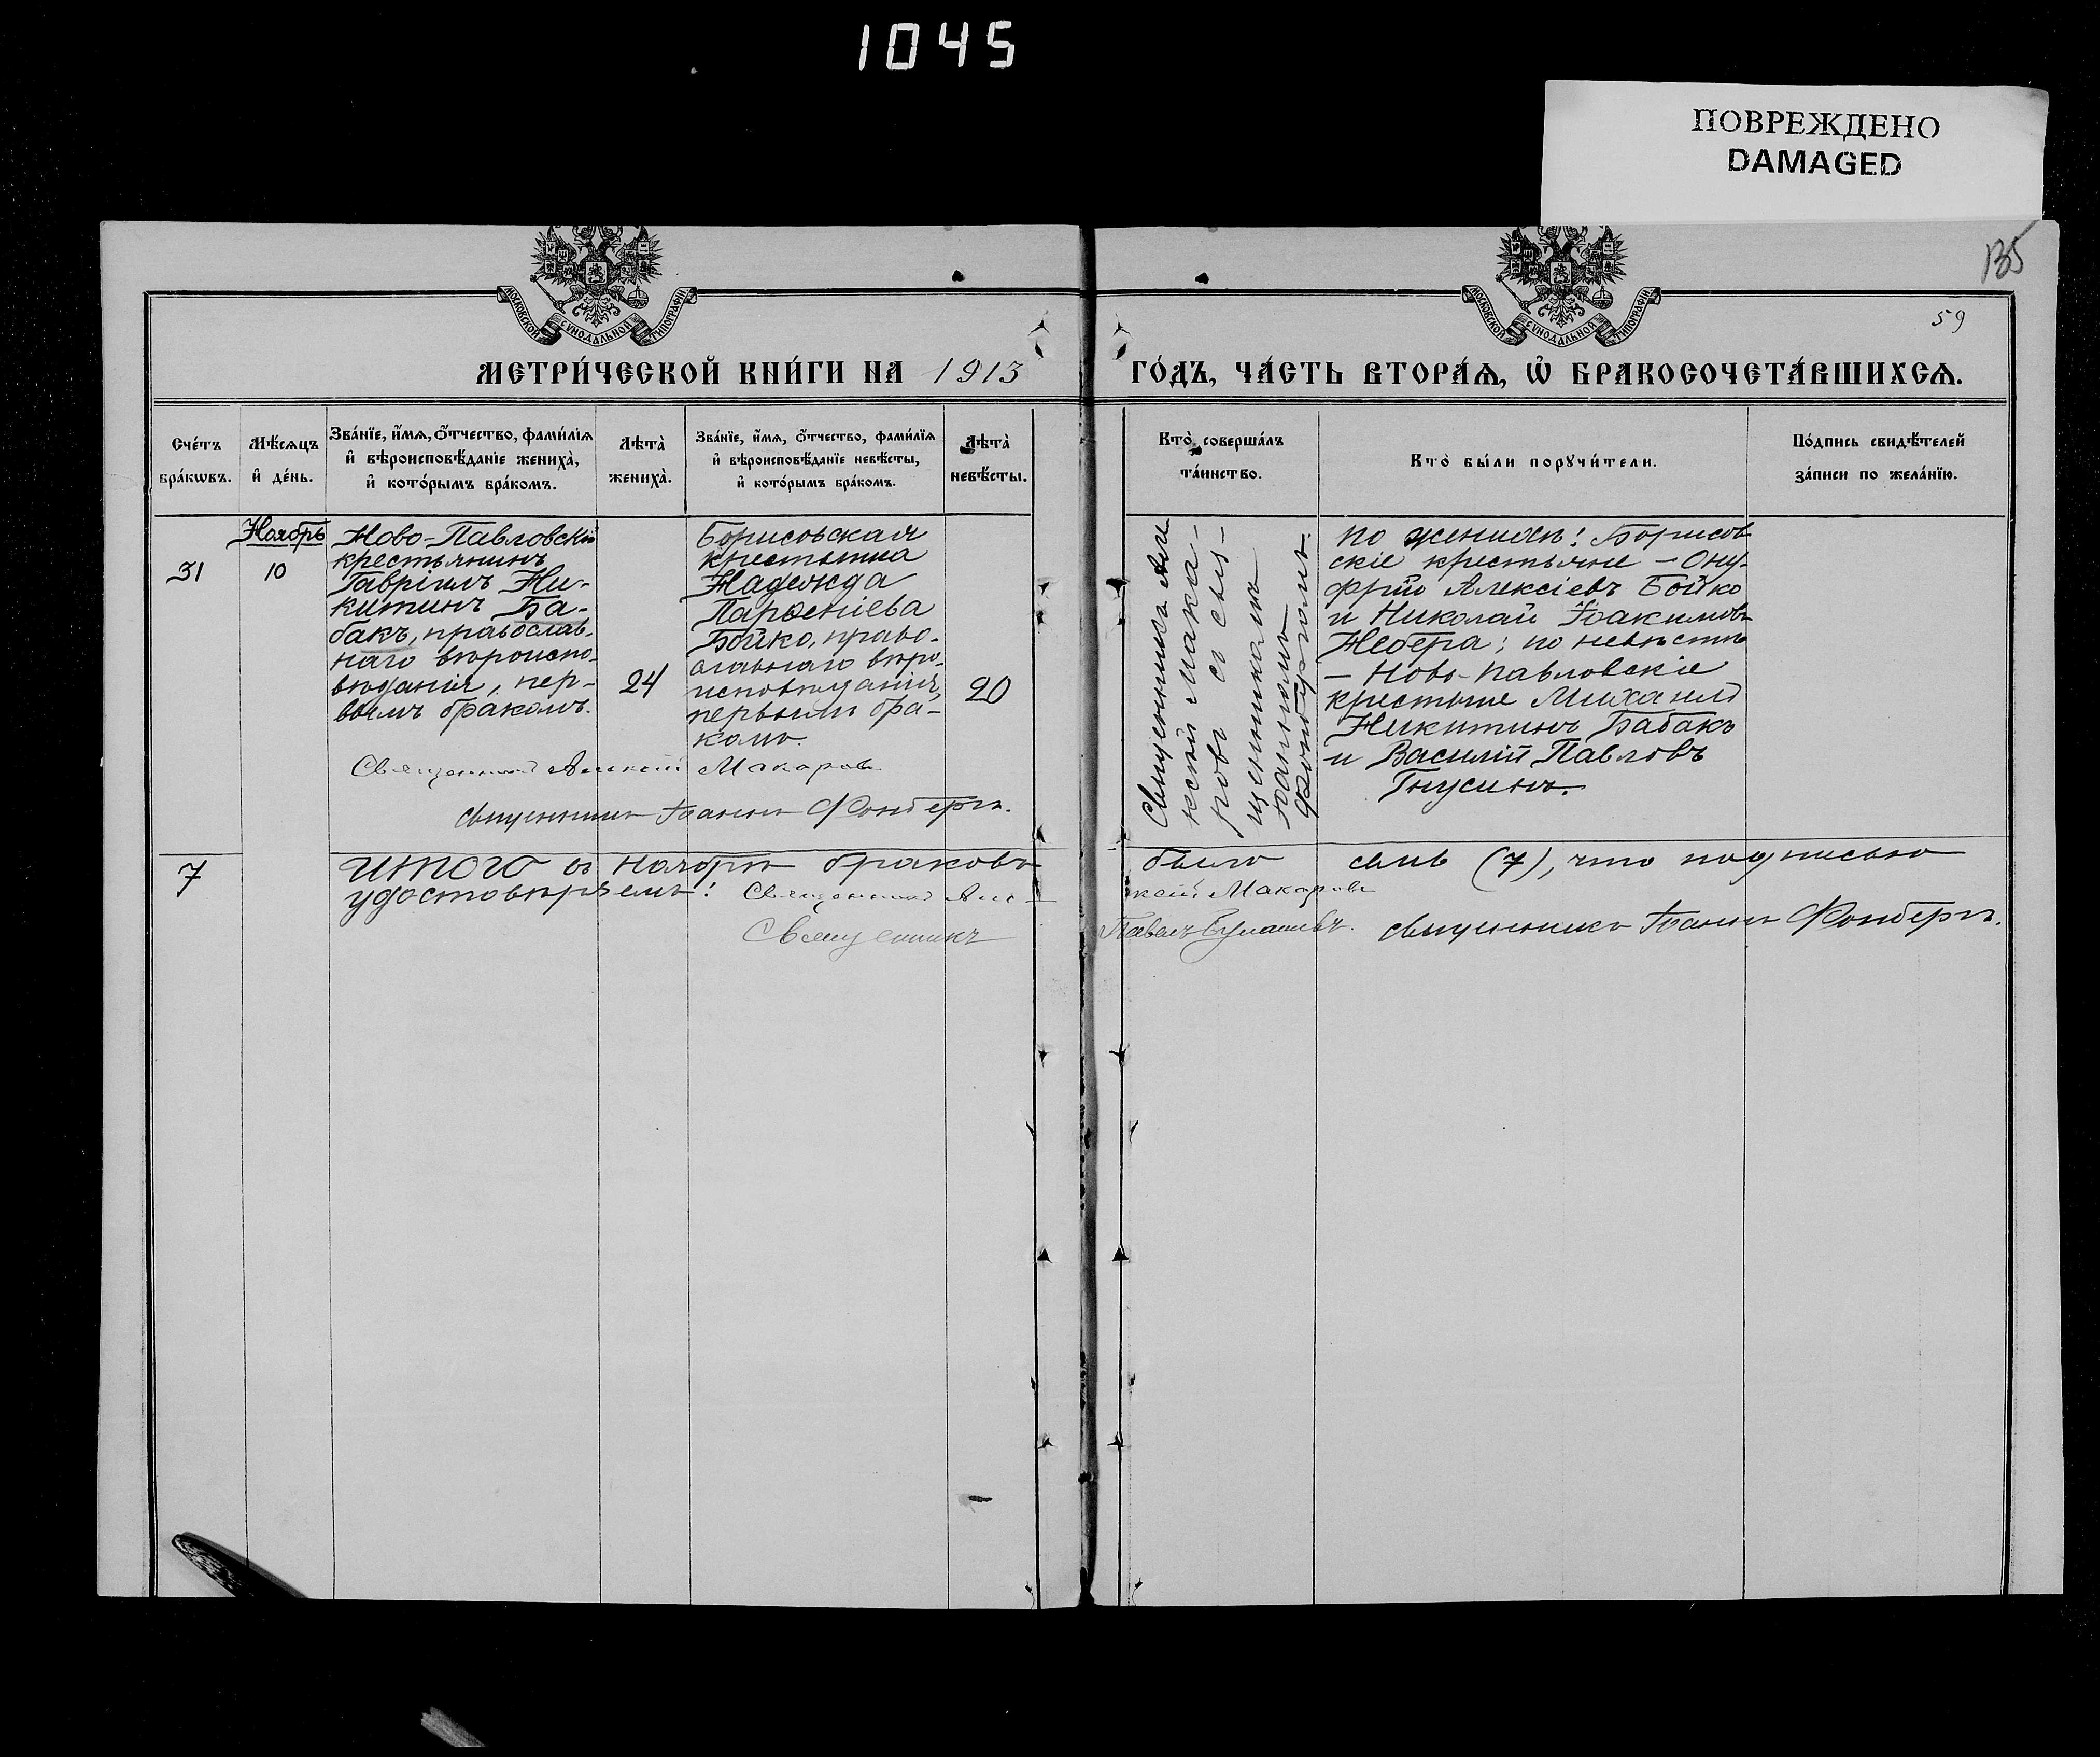 1045
ПОВРЕЖДЕНО
DAMAGED
135
59
МОСКОВСКОЙ СѴНОДАЛЬНОЙ ТИПОГРАФІИ
МОСКОВСКОЙ СѴНОДАЛЬНОЙ ТИПОГРАФІИ
МЕТРИ́ЧЕСКОЙ КНИ́ГИ НА 1913
ГО́ДЪ, ЧА́СТЬ ВТОРА́Ѧ, Ѽ БРАКОСОЧЕТА́ВШИХСѦ.
Сче́тъ
бра́кѡвъ.
Мѣ́сяцъ
и҆ де́нь.
Зва́нїе, и҆́мѧ, ѻ҆́тчество, фами́лїѧ
и҆ вѣроисповѣ́данїе жениха̀,
и҆ кото́рымъ бра́комъ.
Лѣта̀
жениха̀.
Зва́нїе, и҆́мѧ, ѻ҆́тчество, фами́лїѧ
и҆ вѣроисповѣ́данїе невѣ́сты,
и҆ кото́рымъ бра́комъ.
Лѣта̀
невѣ́сты.
Кто̀ соверша́лъ
та́инство.
Кто̀ бы́ли порꙋчи́тели.
По́дпись свидѣ́телей
за́писи по жела́нїю.
31
Ноябрь
10
Ново-Павловскій
крестьянинъ
Гавріилъ Ни-
китинъ Ба-
бакъ, православ-
наго вѣроиспо-
вѣданія, пер-
вымъ бракомъ.
24
Борисовская
крестьянка
Надежда
Парѳеніева
Бойко, право-
славнаго вѣро-
исповѣданія,
первымъ бра-
комъ.
20
Священникъ Але-
ксѣй Мака-
ровъ съ свя-
щенникомъ
Іоанномъ
Фонбергомъ.
по женихѣ: Борисов
скіе крестьяне – Ону-
фрій Алексіевъ Бойко
и Николай Іоакимовъ
Жебера; по невѣстѣ
– Ново-Павловскіе
крестьяне Михаилъ
Никитинъ Бабакъ
и Василій Павловъ
Гнусинъ.
Священникъ Алексѣй Макаровъ
священникъ Іоаннъ Фонбергъ.
7
Итого въ ноябрѣ браковъ было семь (7), что подписью
удостовѣряемъ: Священникъ Але-ксѣй Макаровъ
Священникъ Павелъ священникъ Іоаннъ Фонбергъ.